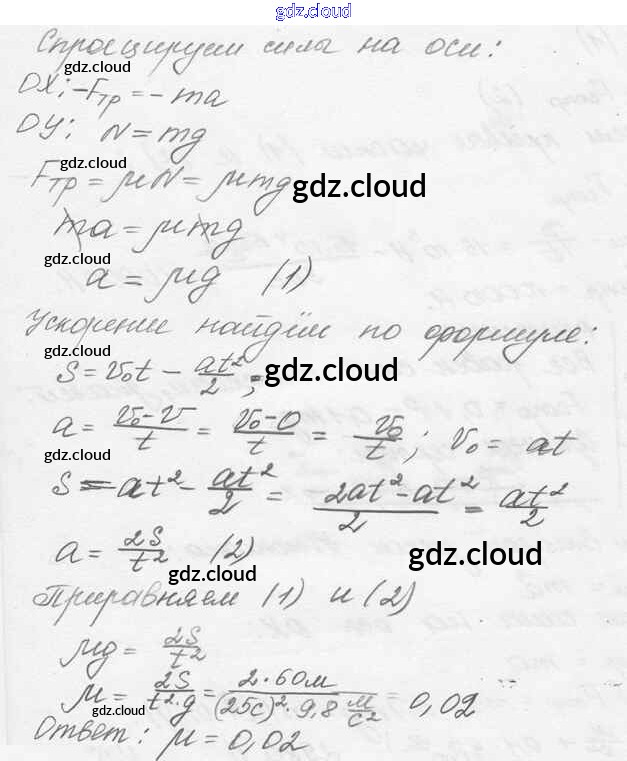 gdz.cloud
Спроецируем силы на оси:
gdz.cloud
OX: -Fтр = -ma
OY: N = mg
gdz.cloud
Fтр = μN = μmg
gdz.cloud
ma = μmg
gdz.cloud
a = μg (1)
Ускорение найдём по формуле:
gdz.cloud
S = v₀t - at²/2;
gdz.cloud
a = (v₀ - v)/t = (v₀ - 0)/t = v₀/t; v₀ = at
gdz.cloud
S = at² - at²/2 = (2at² - at²)/2 = at²/2
gdz.cloud
a = 2S/t² (2)
gdz.cloud
gdz.cloud
Приравняем (1) и (2)
μg = 2S/t²
μ = 2S/(t²·g) = (2·60м)/((25с)²·9,8 м/с²) = 0,02
gdz.cloud
Ответ: μ = 0,02